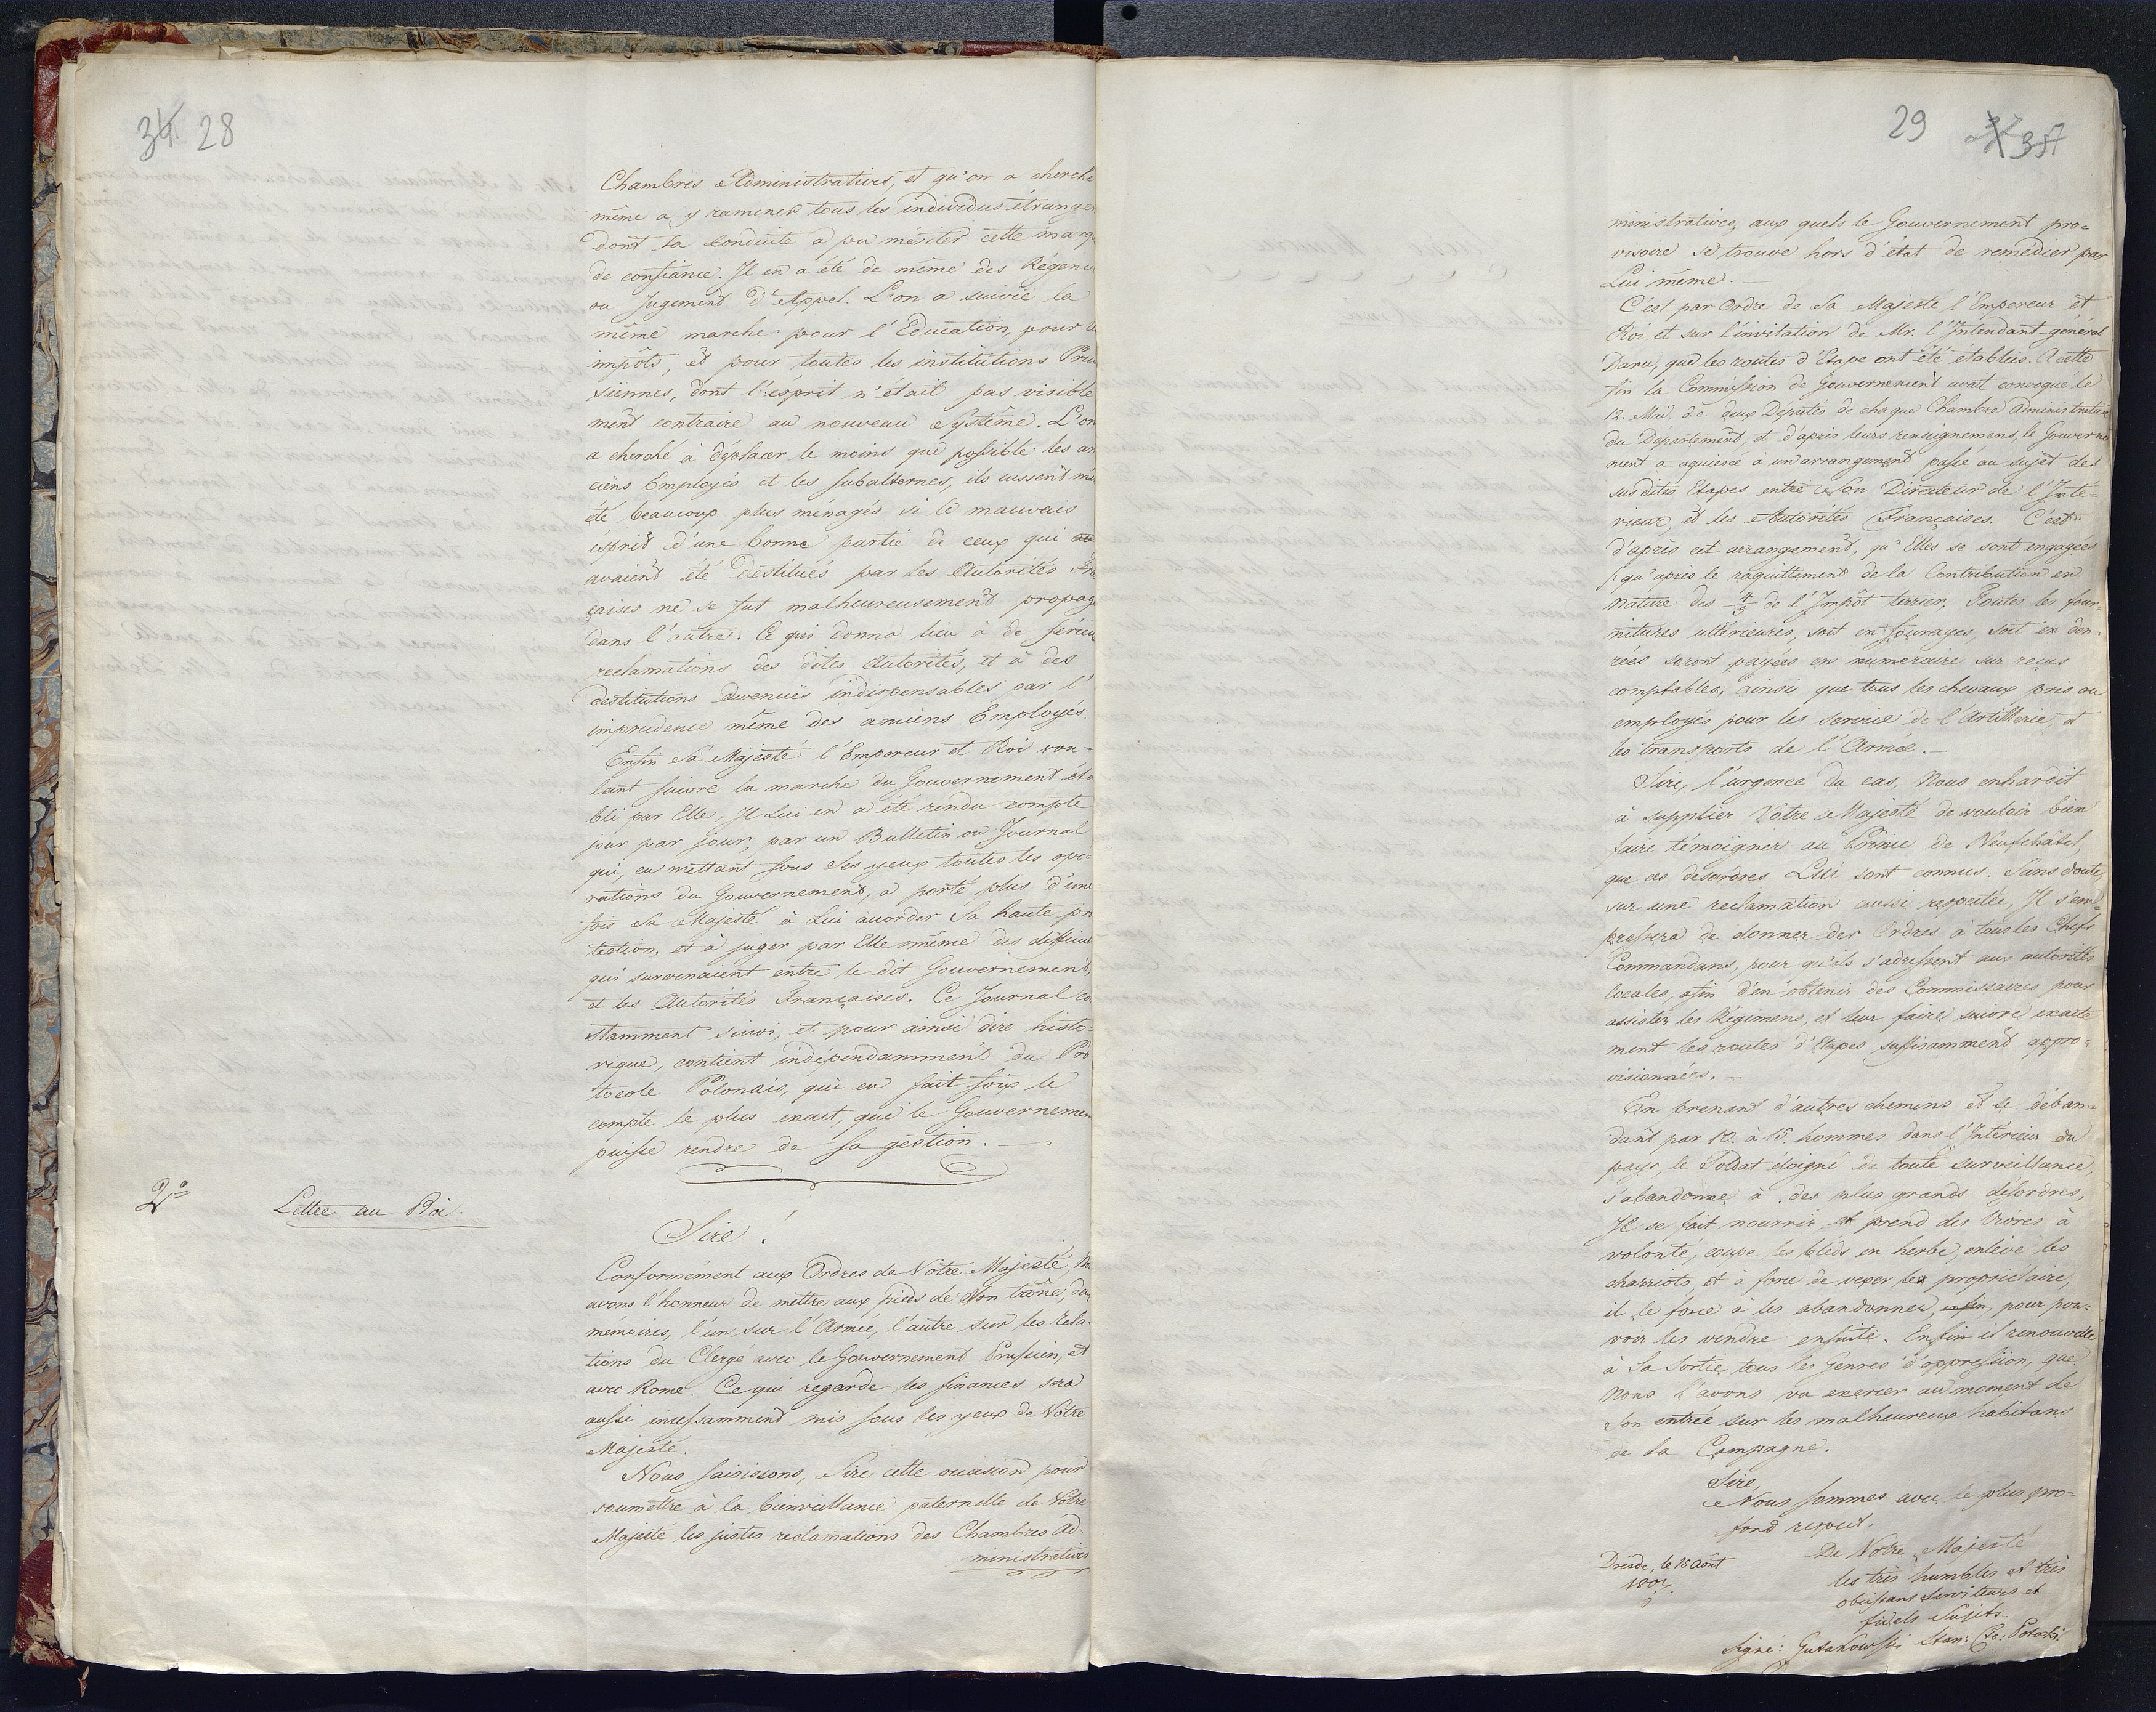 34 28
Chambres Administratives, et qu'on a cherché
même a y ramener tous les individus étrangers
dont la conduite a pu mériter cette marq
de confiance. Il en a été de même des Régence
ou Jugement d'Appel. L'on a suivie la
même marche pour l'Education, pour le
impôts, et pour toutes les institutions Prus
siennes, dont l'esprit n'était pas visible
ment contraire au nouveau Système. L'on
a cherché à déplacer le moins que possible les an
ciens Employés et les subalternes, ils eussent mê
été beaucoup plus ménagés si le mauvais
esprit d'une bonne partie de ceux qui
avaient été destitués par les Autorités Fra
çaises ne se fut malheureusement propag
dans l'autre. Ce qui donna lieu à de sérieu
reclamations des dites Autorités, et à des
destitutions devenuës indispensables par l'
imprudence même des anciens Employés.
Enfin Sa Majesté l'Empereur et Roi vou-
lant suivre la marche du Gouvernement éta
bli par Elle, Il Lui en a été rendu compte
jour par jour, par un Bulletin ou Journal
qui, en mettant sous Ses yeux toutes les opé-
rations du Gouvernement, a porté plus d'une
fois Sa Majesté à Lui accorder Sa haute pro
tection, et à juger par Elle même des difficul
qui survenaient entre le dit Gouvernement,
et les Autorités Françaises. Ce Journal co
stamment suivi, et pour ainsi dire histo-
rique, contient indépendamment du Pro
tocole Polonais, qui en fait foix le
compte le plus exact, que le Gouvernemen
puisse rendre de sa gestion. —
2°
Lettre au Roi.
Sire!
Conformément aux Ordres de Votre Majesté, N
avons l'honneur de mettre aux pieds de Son trône, deu
mémoires, l'un sur l'Armée, l'autre sur les réla-
tions du Clergé avec le Gouvernement Prussien, et
avec Rome. Ce qui regarde les finances sera
aussi incessamment mis sous les yeux de Votre
Majesté.
Nous saisissons, Sire cette occasion pour
soumettre à la bienveillance paternelle de Votre
Majesté les justes reclamations des Chambres Ad-
ministratives
29
ministratives, aux quels le Gouvernement pro-
visoire se trouve hors d'état de remedier par
Lui même. —
C'est par Ordre de Sa Majesté l'Empereur et
Roi et sur l'invitation de Mr. l'Intendant-général
Daru, que les routes d'Etape ont été établies. A cette
fin la Commission de Gouvernement avait convoqué le
12. Mai, d.c. deux Députés de chaque Chambre Administrative
du Département, et d'après leurs renseignemens, le Gouverne
ment a aquiescé à un arrangement passé au sujet des
sus dites Etapes entre Son Directeur de l'Inté-
rieur, et les Autorités Françaises. C'est
d'après cet arrangement, qu'Elles se sont engagées
qu'après le raquittement de la Contribution en
nature des de l'Impôt terrier, Toutes les four-
nitures ultérieures, soit en fourages, soit en den-
rées seront payées en numeraire sur reçus
comptables, ainsi que tous les chevaux pris ou
employés pour les service de l'Artillerie, et
les transports de l'Armée. —
Sire, l'urgence du cas, Nous enhardit
à supplier Vôtre Majesté de vouloir bien
faire témoigner au Prince de Neufchâtel,
que ces desordres Lui sont connus. Sans doute,
sur une reclamation aussi respectée, Il s'em-
pressera de donner des Ordres à tous les Chefs
Commandans, pour qu'ils s'adressent aux autorités
locales, afin d'en obtenir des Commissaires pour
assister les Régimens, et leur faire suivre exacte
ment les routes d'Etapes suffisamment appro-
visionnées. —
En prenant d'autres chemins et se déban-
dant par 10. à 15. hommes dans l'Intérieur du
pays, le Soldat éloigné de toute surveillance,
s'abandonne à des plus grands désordres,
Il se fait nourrir et prend des Vivres à
volonté, coupe les bleds en herbe, enlève les
charriots, et à force de vexer le propriétaire,
il le force à les abandonner, enfin pour pou-
voir les vendre ensuite. Enfin il renouvelle
à Sa Sortie tous les Genres d'oppression, que
Nous l'avons vu exercer au moment de
Son entrée sur les malheureux habitans
de la Campagne.
Sire,
Nous sommes avec le plus pro-
fond respect.
De Votre Majesté
les très humbles et très
obeissans Serviteurs et
fidels Sujets
Dresde, le 15 Août
1807.
Signé: Gutakowski Stan: Cte: Potocki